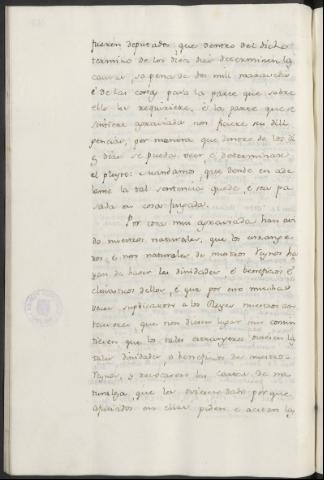 fueren deputados que dentro del dicho
termino de los diez dias determinen las
causas, so pena de dos mil maravedis
é de las costas para la parte que sobre
ello les requiriere, é la parte que se
sintiere agraviada non ficiere su dili
gencias, por manera que dentro de los di
z dias se pueda veer é determinar
el pleyto: mandamos, que dende en ade
lante la tal sentencia quede é sea pa
sada en cosa juzgada.
Por cosa mui agraviada han avi
do nuestros naturales, que los estrange
ros, é non naturales de nuestros Reynos ha
yan de haber las dinidades é beneficios é
clesiasticos dellos, é que por eso muchas
veces suplicaron a los Reyes nuestros an
tecesores, que non diesen lugar nin consin
tiesen que los tales estrangeros oviesen las
tales dinidades, é beneficios de nuestros
Reynos, é revocasen las cartas de na
turaleza, que les oviesen dado porque
apoiados en ellas piden é acetan las